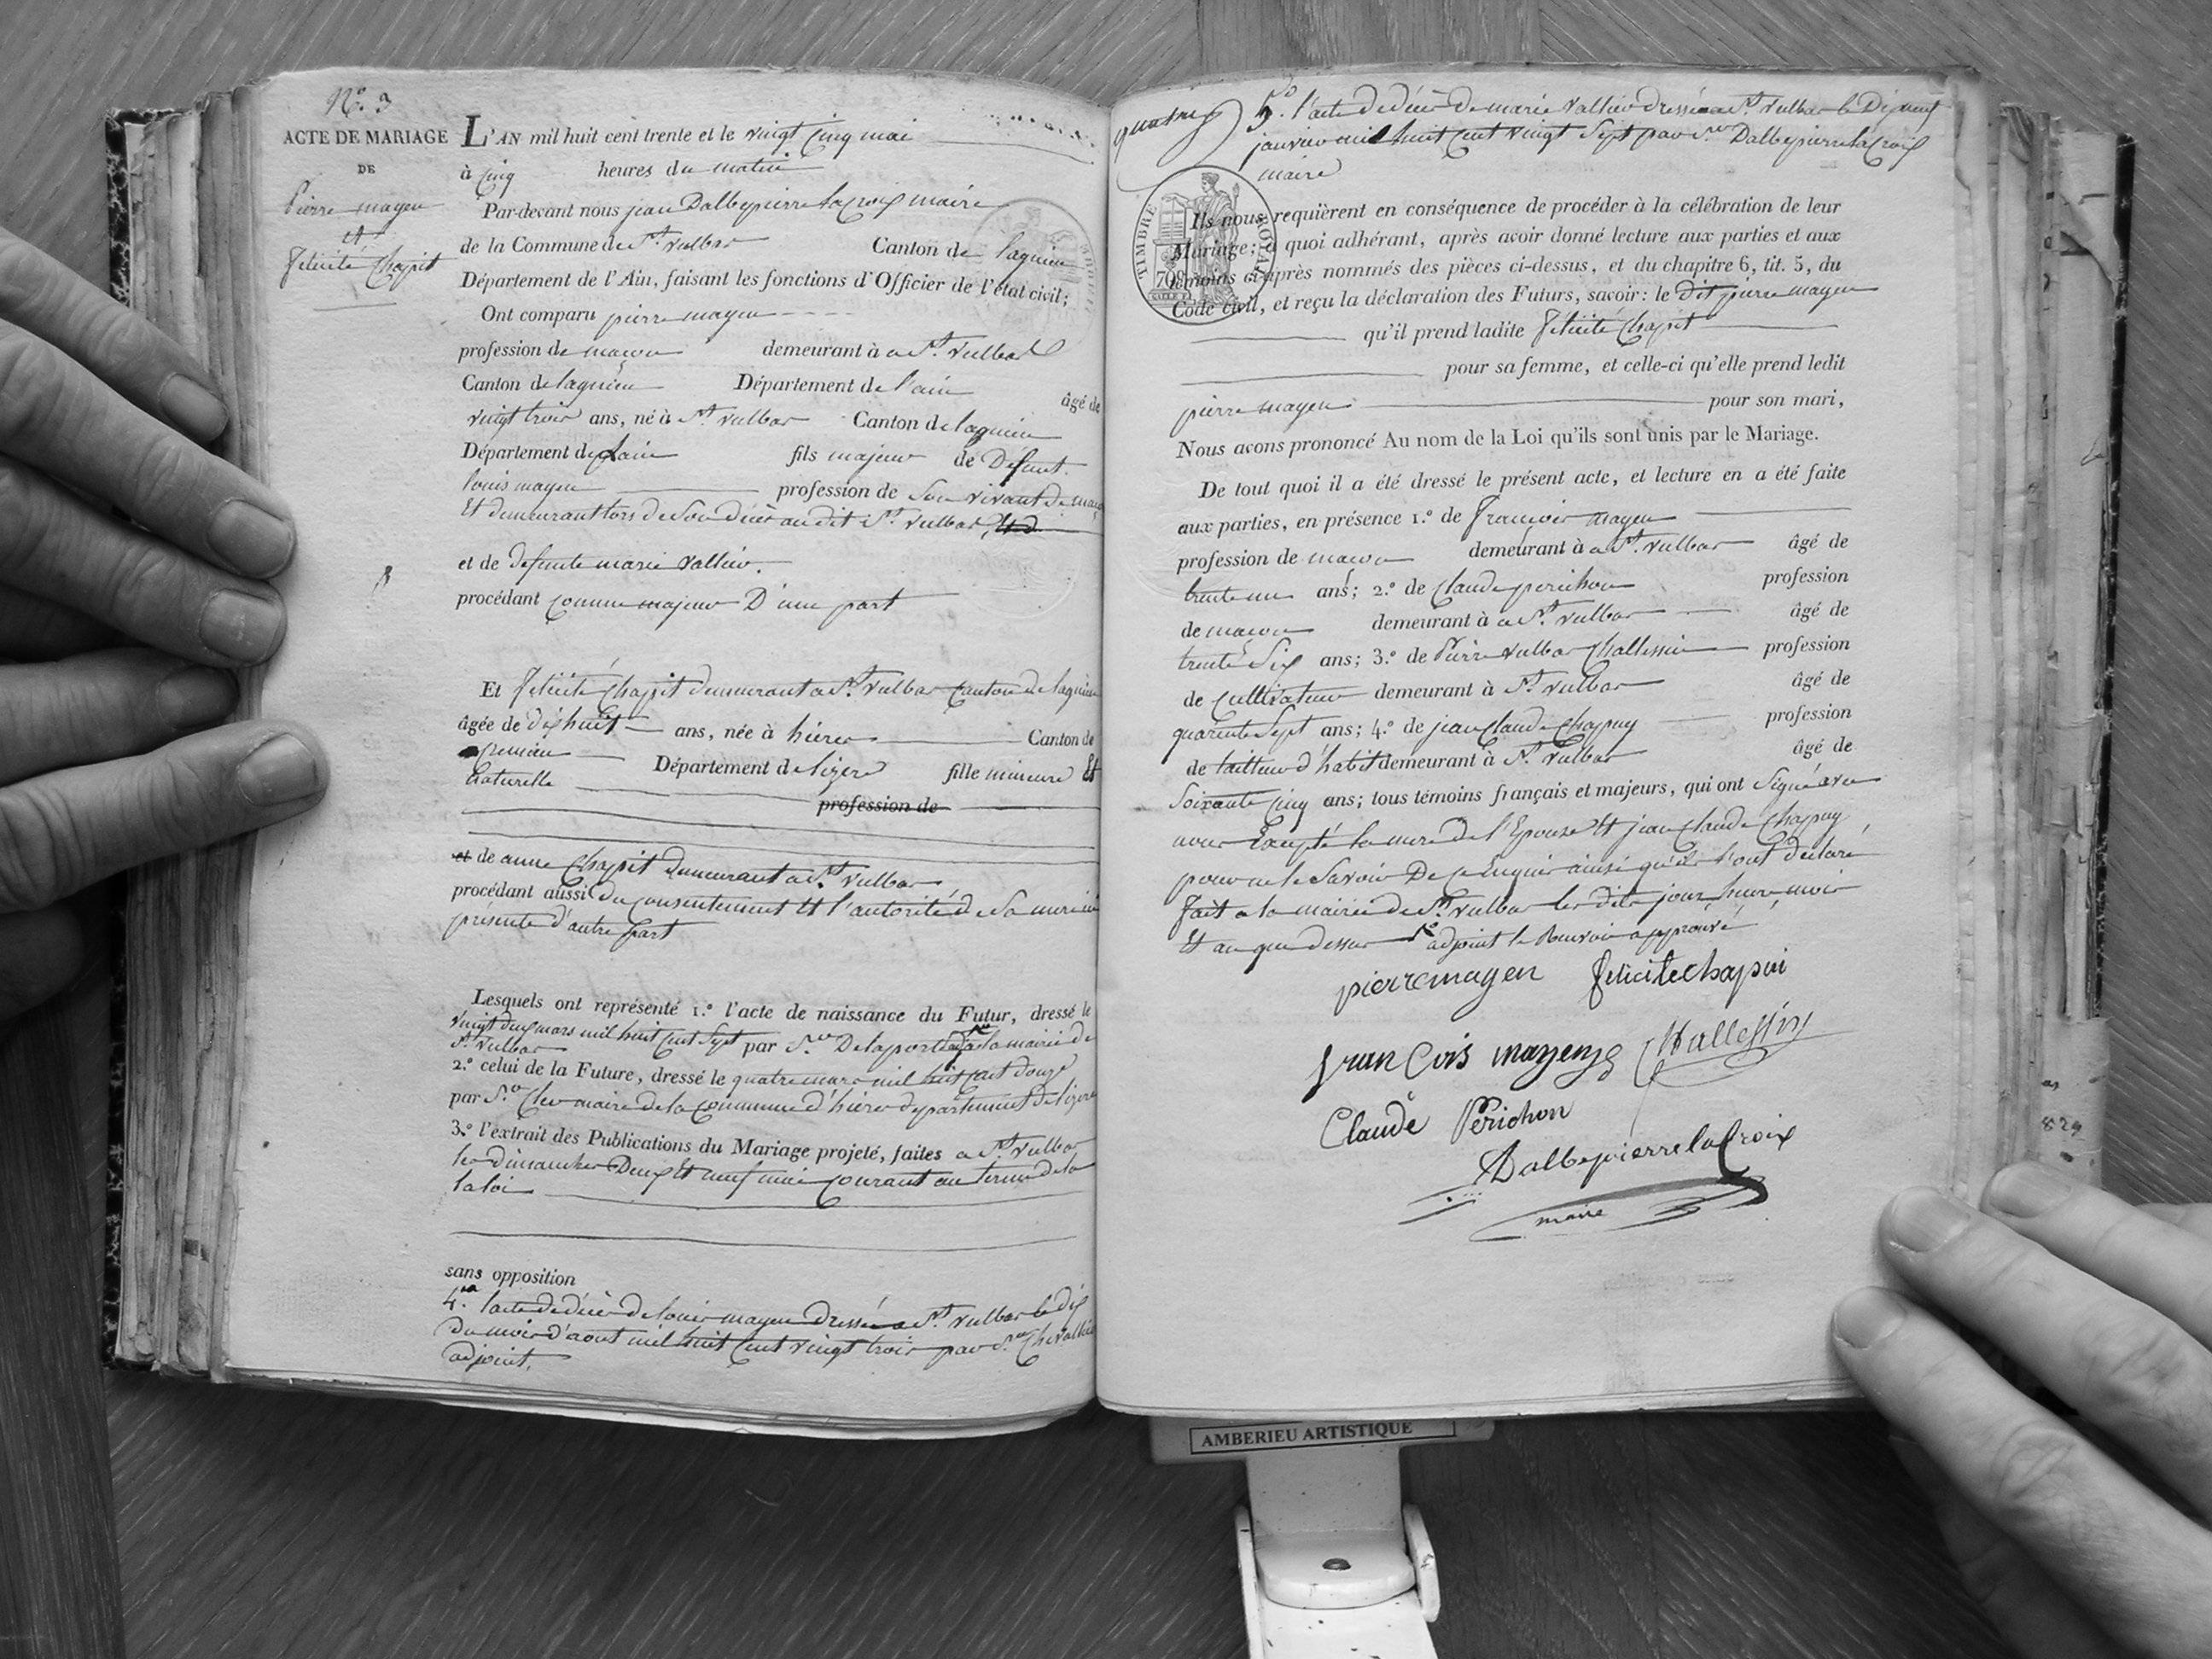 N.º 3
ACTE DE MARIAGE
DE
Pierre mayen
et
félicité Chapit
L'AN mil huit cent trente et le vingt cinq mai
à cinq heures du matin
Par-devant nous jean Dalbepierre lacroix maire
de la Commune de St. vulbas Canton de lagnieu
Département de l'Ain, faisant les fonctions d'Officier de l'état civil;
Ont comparu pierre mayen
profession de maçon demeurant à a St. vulbas
Canton de lagnieu Département de l'ain âgé de
vingt trois ans, né à St. vulbas Canton de lagnieu
Département de lain fils majeur de Defunt
louis mayen profession de Son vivant de maçon
Et demeurant lors de Son décès au dit St. vulbas, Et d
et de defunte marie vallier.
procédant comme majeur D'une part
Et félicité Chapit demeurant a St. vulbas Canton de lagnieu
âgée de dix huit ans, née à hières Canton de
cremieu Département de lizere fille mineure Et
naturelle
profession de
et de anne Chapit demeurant a St. vulbas
procédant aussi du consentement Et l'autorité de Sa mere ici
présente d'autre part
Lesquels ont représenté 1.º l'acte de naissance du Futur, dressé le
vingt deux mars mil huit cent Sept par Sr. Delaporte a la mairie de
St. vulbas
2.º celui de la Future, dressé le quatre mars mil huit cent douze
par Sr. maire de la commune d'hières departement de lizere
3.º l'extrait des Publications du Mariage projeté, faites a St. vulbas
les dimanches Deux Et neuf mai courant au terme de la
la loi
sans opposition
4.º l'acte de décès de louis mayen dressé a St. vulbas le dix
Du mois d'aout mil huit cent vingt trois par Sr. Chevallier
adjoint.
5.º l'acte de décès de marie vallier dressé a St. vulbas le Dix neuf
janvier mil huit cent vingt Sept par Sr. Dalbepierre lacroix
maire
TIMBRE ROYAL
70c
Ils nous requièrent en conséquence de procéder à la célébration de leur
Mariage; à quoi adhérant, après avoir donné lecture aux parties et aux
témoins ci-après nommés des pièces ci-dessus, et du chapitre 6, tit. 5, du
Code civil, et reçu la déclaration des Futurs, savoir: le dit pierre mayen
qu'il prend ladite félicité Chapit
pour sa femme, et celle-ci qu'elle prend ledit
pierre mayen pour son mari,
Nous avons prononcé Au nom de la Loi qu'ils sont unis par le Mariage.
De tout quoi il a été dressé le présent acte, et lecture en a été faite
aux parties, en présence 1.º de françois mayen
profession de maçon demeurant à a St. vulbas âgé de
trente un ans; 2.º de Claude perichon profession
de maçon demeurant à a St. vulbas âgé de
trente Six ans; 3.º de Pierre vulbas Challessin profession
de cultivateur demeurant à St. vulbas âgé de
quarente Sept ans; 4.º de jean Claude Chapuy profession
de tailleur d'habit demeurant à St. vulbas âgé de
Soixante cinq ans; tous témoins français et majeurs, qui ont Signé avec
nous Excepté la mere de l'Epouse Et jean Claude Chapuy
pour ne le Savoir De ce Enquis ainsi qu'ils l'ont déclaré
fait a la mairie de St. vulbas les dits jour, heure, mois
Et an que dessus adjoint le Renvoi approuvé
pierre mayen felicite chapui
francois mayen Challessin
Claude Périchon
Dalbepierre lacroix
maire
AMBERIEU ARTISTIQUE